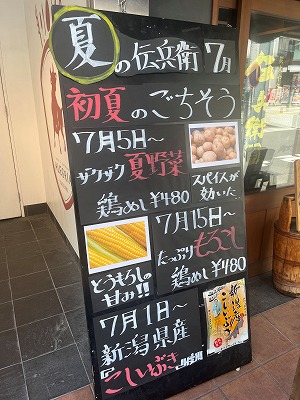 夏の伝兵衛 7月
初夏のごちそう
7月5日～
ザクザク夏野菜
スパイスが
効いた
鶏めし¥480
7月15日～
たっぷりもろこし
鶏めし¥480
とうもろこしの
甘み!!
7月1日～
新潟県産
『こしいぶき
こしいぶき